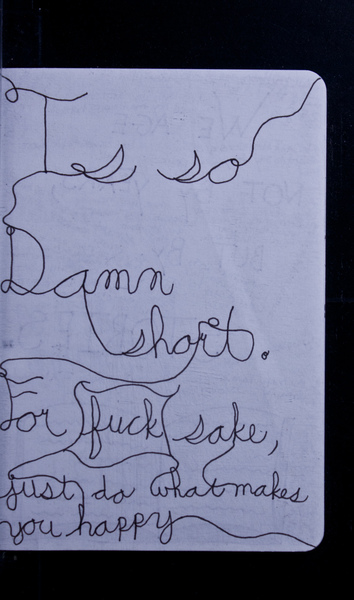 Is so
Damn
short.
For fuck sake,
just do what makes
you happy